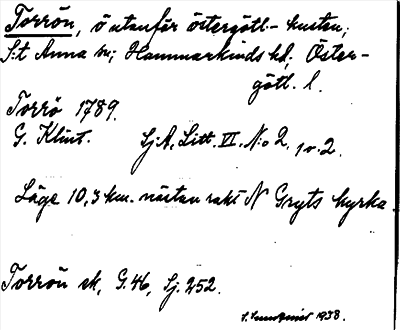 Torrön, ö utanför östergötl.-kusten;
S:t Anna sn; Hammarkinds hd; Öster-
götl. l.
Torrö 1789.
G. Klint. Sj.A. Litt. VI. N:o 2, 1 o. 2.
Läge 10,3 km. nästan rakt N Gryts kyrka.
Torrön ek, G. 46, Sj. 252.
1938.